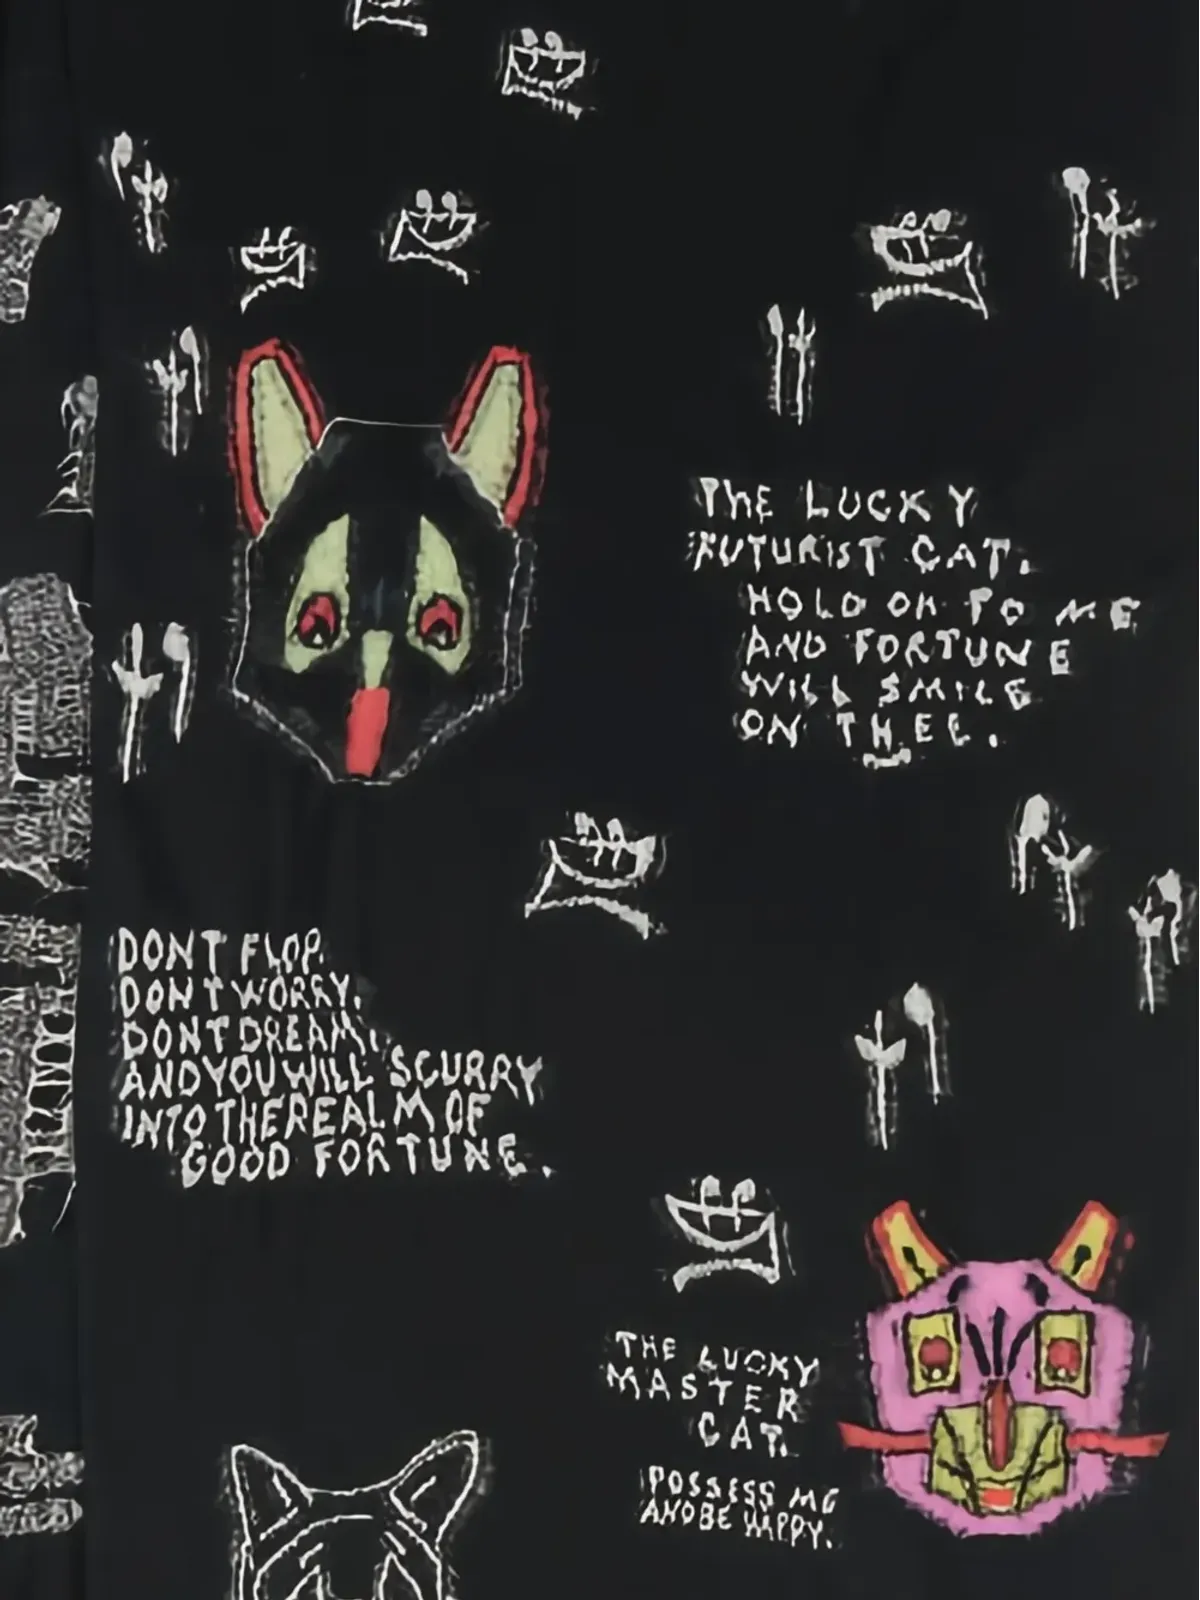 THE LUCKY
FUTURIST CAT.
HOLD ON TO ME
AND FORTUNE
WILL SMILE
ON THEE.
DONT FLOP.
DONT WORRY.
DONT DREAM.
AND YOU WILL SCURRY
INTO THE REALM OF
GOOD FORTUNE.
THE LUCKY
MASTER
CAT.
POSSESS ME
AND BE HAPPY.